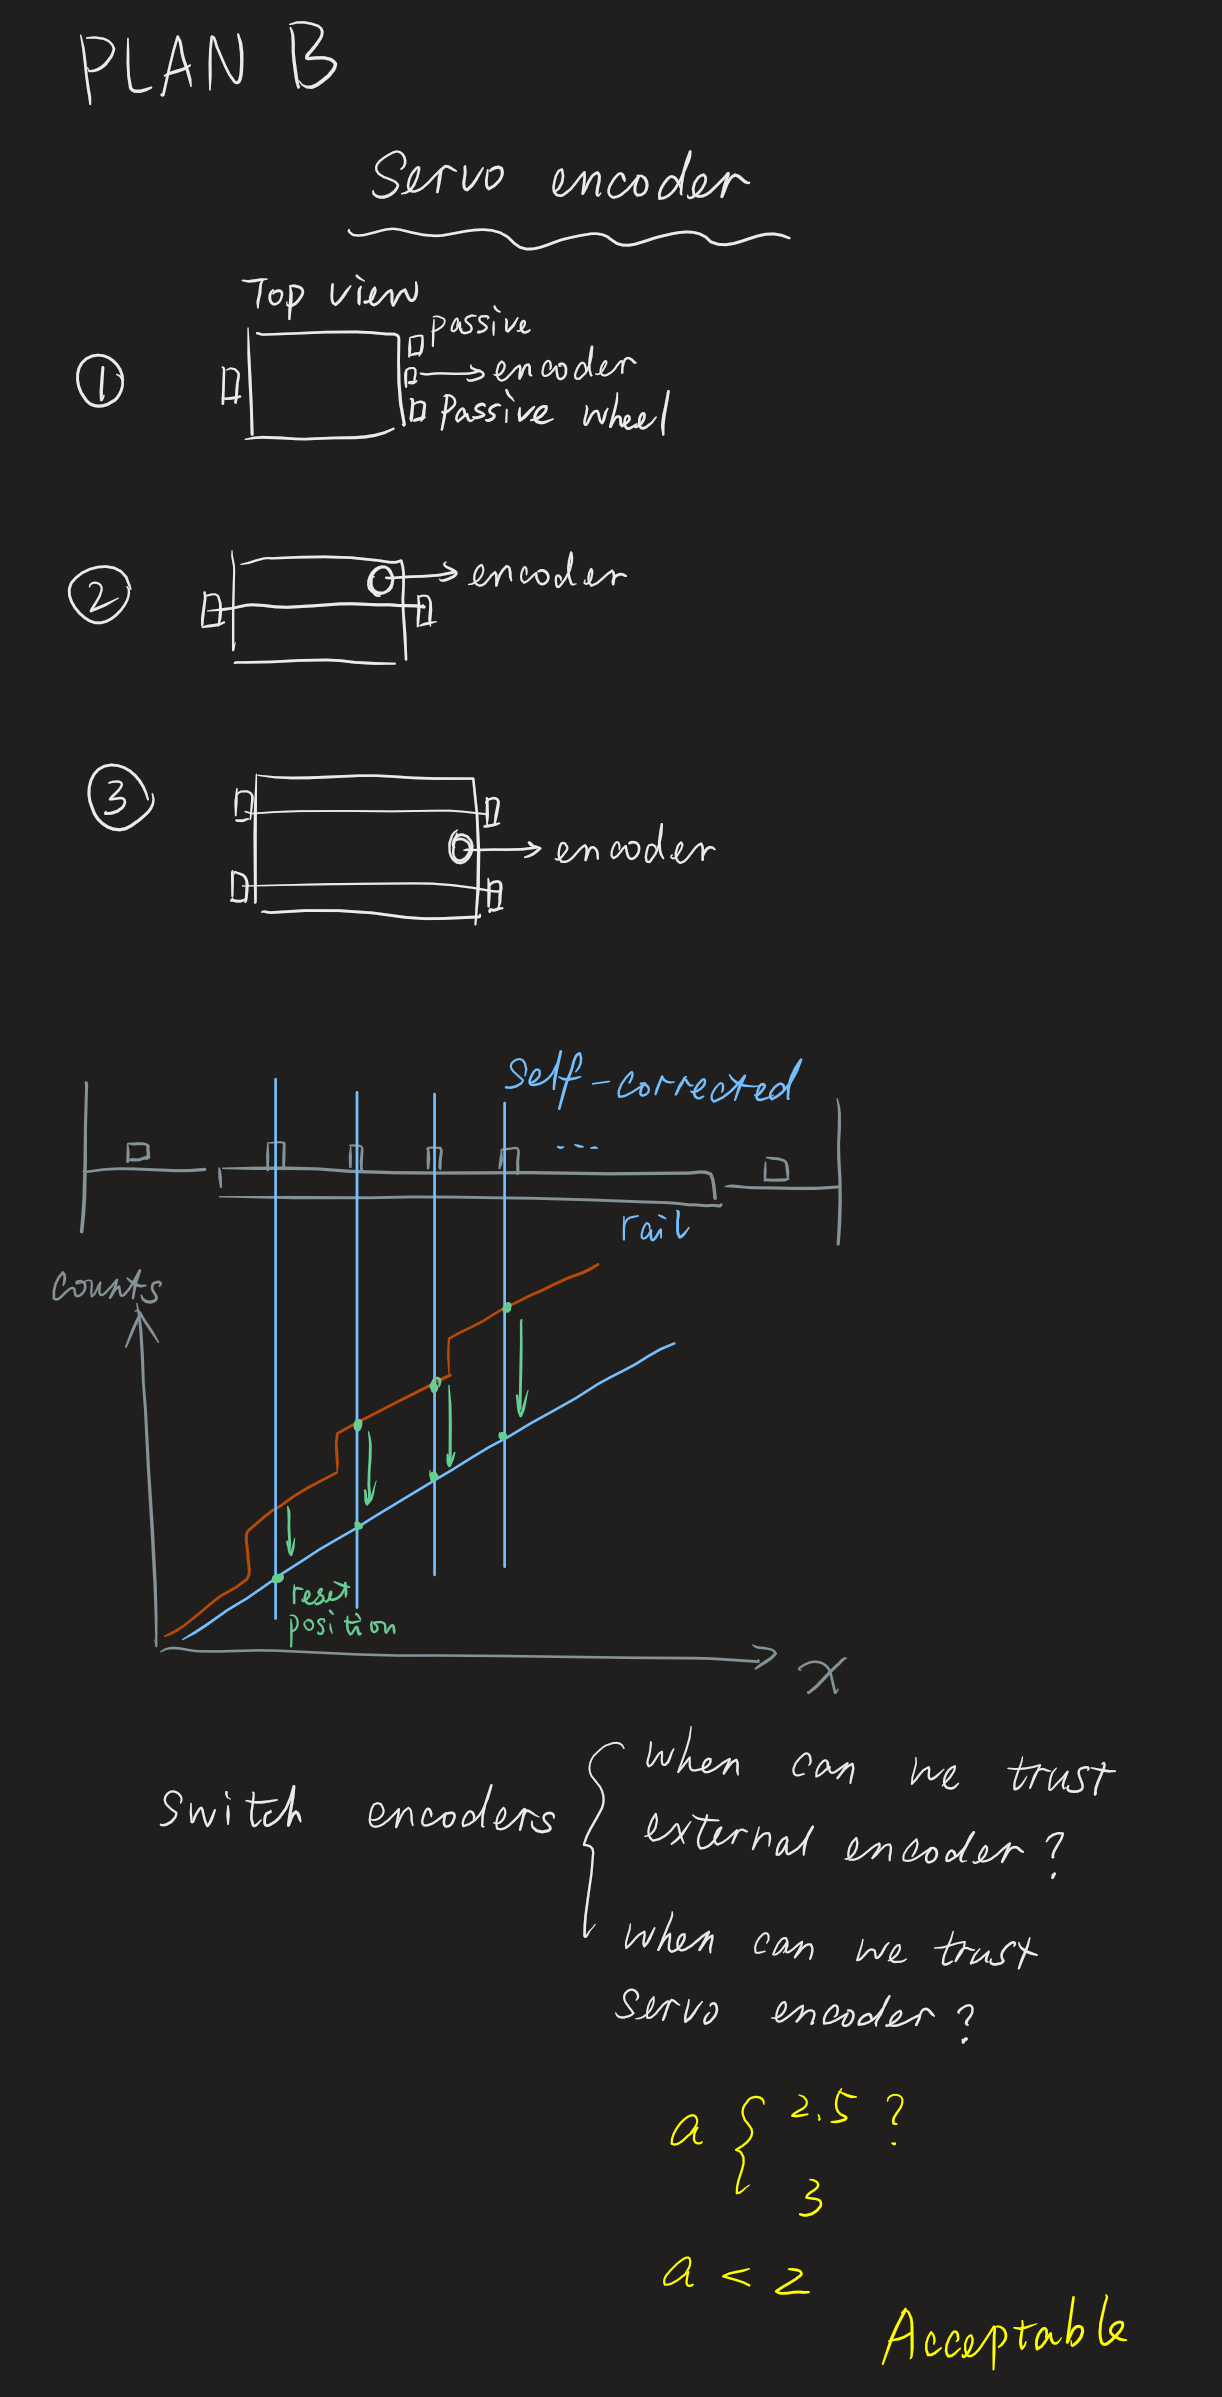 PLAN B
Servo encoder
Top view
passive
① encoder
Passive wheel
② encoder
③ encoder
self-corrected
...
rail
counts
reset
position
x
when can we trust
switch encoders
external encoder?
when can we trust
servo encoder?
a { 2.5 ?
3
a < 2
Acceptable